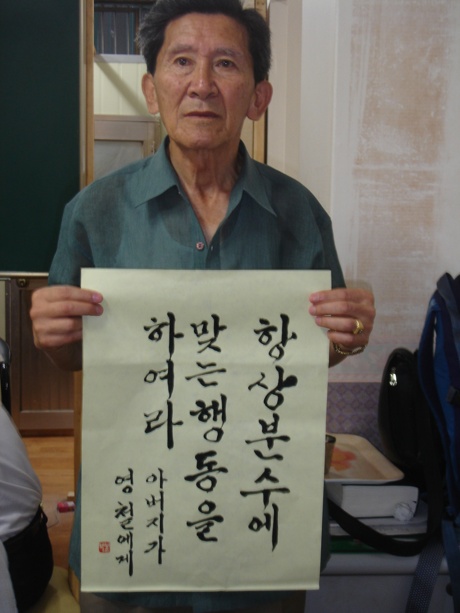 항상분수에
맞는행동을
하여라
아버지가
영철에게